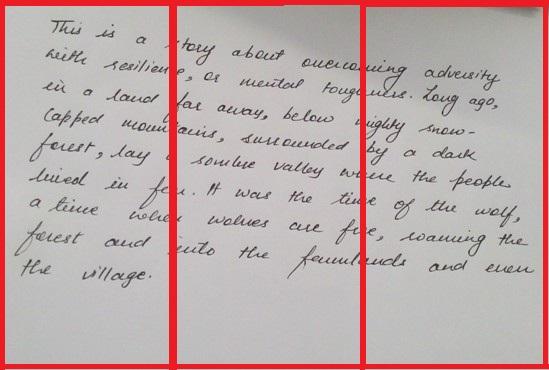 This is a story about overcoming adversity
with resilience, or mental toughness. Long ago,
in a land far away, below mighty snow-
capped mountains, surrounded by a dark
forest, lay a sombre valley where the people
lived in fear. It was the time of the wolf,
a time when wolves are free, roaming the
forest and into the farmlands and even
the village.